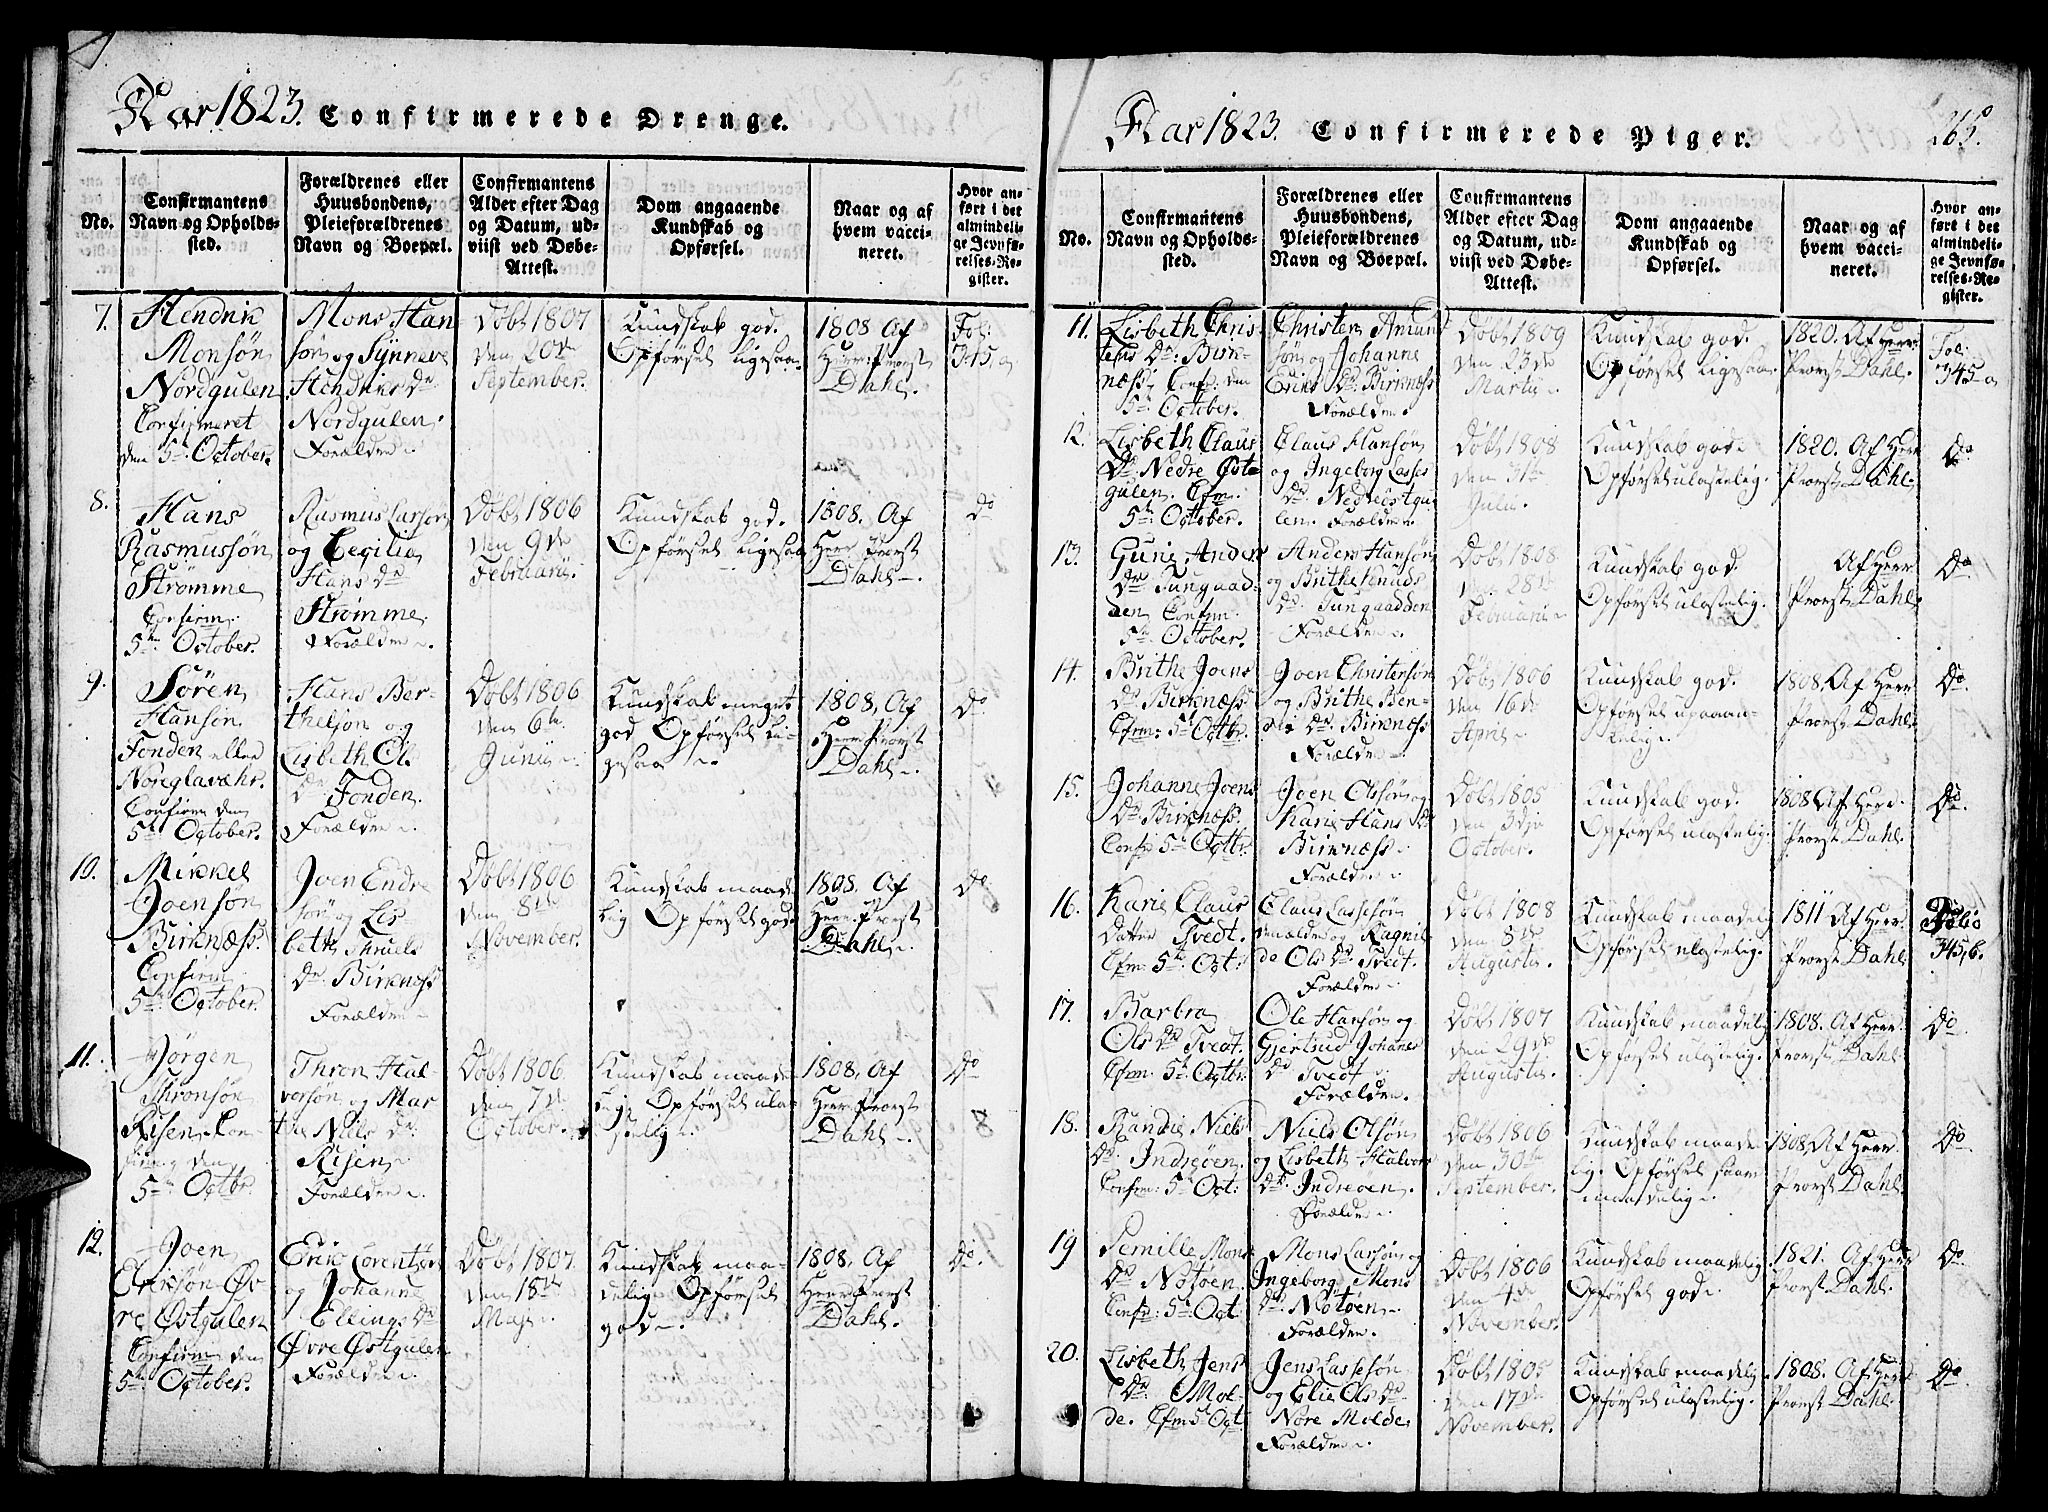 Aar 1823. Confirmerede Drenge.
No.
Confirmantens
Navn og Opholds-
sted.
Forældrenes eller
Huusbondens,
Pleieforældrenes
Navn og Boepæl.
Confirmantens
Alder efter Dag
og Datum, ud-
viist ved Døbe-
Attest.
Dom angaaende
Kundskab og
Opførsel.
Naar og af
hvem vacci-
neret.
Hvor an-
ført i det
almindeli-
ge Jevnfø-
relses-Re-
gister.
7.
Hendrik
Monsøn
Nordgulen
Confirmeret
den 5te October.
Mons Han
søn og Synneve
Hendriks Dr
Nordgulen.
Forældre.
Døbt 1807
den 20de
September.
Kundskab god.
Opførsel ligesaa.
1808 Af
Herr Provst
Dahl.
Fol:
345, a
8.
Hans
Rasmussøn
Strømme
Confirm:
5te October.
Rasmus Larsøn
og Cecilia
Hans Dr
Strømme.
Forældre.
Døbt 1806
den 9de
Februarii.
Kundskab god.
Opførsel ligesaa
1808. Af
Herr Provst
Dahl.
Do
9.
Søren
Hansøn
Fonden eller
Noreglavæhr.
Confirm den
5te October.
Hans Ber-
thelsøn og
Lisbeth Ol.
Dr Fonden.
Forældre.
Døbt 1806
den 6te
Junii.
Kundskab meget
god Opførsel li-
gesaa.
1808, Af
Herr Provst
Dahl.
Do
10.
Mikkel
Joensøn
Birknæss.
Confirm
5te October.
Joen Endre
søn og Lis-
beth Thruels
Dr Birknæss
Forældre.
Døbt 1806
den 8de
November.
Kundskab maade-
lig Opførsel god.
1808. Af
Herr Provst
Dahl.
Do
11.
Jørgen
Thronsøn
Risen, Con-
firm. den
5te Octbr.
Thron Hal-
vorsøn og Mar
the Niels Dr
Risen.
Forældre.
Døbt 1806
den 7de
October.
Kundskab maade-
lig Opførsel ula-
stelig.
1808, Af
Herr Provst
Dahl.
Do
12.
Joen
Eriksøn Øv
re Østgulen
Confirm den
5te October.
Eric Lorentsøn
og Johanne
Ellings Dr
Øvre Østgulen
Forældre.
Døbt 1807.
den 18de
Maji.
Kundskab maa-
delig. Opførsel
god.
1808, Af
Herr Provst
Dahl.
Do.
Aar 1823. Confirmerede Piger. 265.
No.
Confirmantens
Navn og Opholds-
sted.
Forældrenes eller
Huusbondens,
Pleieforældrenes
Navn og Boepæl.
Confirmantens
Alder efter Dag
og Datum, ud-
viist ved Døbe-
Attest.
Dom angaaende
Kundskab og
Opførsel.
Naar og af
hvem vacci-
neret.
Hvor an-
ført i det
almindeli-
ge Jevnfø-
relses-Re-
gister.
11.
Lisbeth Chris-
tens Dr: Birk-
næss, Conf. den
5te October.
Christen Amund
søn og Johanne
Eriks Dr Birknæss
Forældre.
Døbt 1809
den 23de
Martii.
Kundskab god.
Opførsel ligesaa.
1820. Af Herr
Provst Dahl.
Fol:
345 a
12.
Lisbeth Claus
Dr Nedre Øst-
gulen. Cfm.
5te October.
Claus Hansøn
og Ingeborg Lasses
Dr Nedreøstgu
len. Forældre.
Døbt 1808
den 31te
Julii.
Kundskab god.
Opførsel ulastelig.
1820. Af Herr
Provst Dahl.
Do
13.
Gurie Anders
Dr Tungaad-
den Confm
5te October.
Anders Hansøn
og Brithe Knuds
Dr. Tungaadden
Forældre.
Døbt 1808
den 28de
Februarii.
Kundskab god.
Opførsel ulastelig.
Af Herr
Provst Dahl.
Do
14.
Brithe Joens
Dr Birknæss
Cfm: 5te Octbr.
Joen Christensøn
og Brithe Ben-
Dr Birknæss
Forældre.
Døbt 1806
den 16de
April.
Kundskab god.
Opførsel upaaan-
kelig.
1808, Af Herr
Provst Dahl.
Do.
15.
Johanne Joens
Dr Birknæss.
Conf 5te Octbr.
Joen Olssøn og
Karie Hans Dr
Birknæss.
Forældre.
Døbt 1805
den 3dje
October.
Kundskab god.
Opførsel ulastelig.
1808 Af Herr
Provst Dahl.
Do.
16.
Karie Claus
Datter Tvedt.
Cfm: 5te Oct:
Claus Lassesøn
Forældre og Ragnil-
de Ols Dr Tvedt.
Forældre.
Døbt 1808
den 8de
Augusti.
Kundskab maadelig
Opførsel ulastelig.
1811 Af Herr
Provst Dahl
Folio
345, b.
17.
Barbra
Ols Dr Tvedt.
Cfm. 5te Octbr.
Ole Hansøn og
Gjertrud Johanes
Dr Tvedt.
Forældre.
Døbt 1807
den 29de
Augusti.
Kundskab maadelig
Opførsel ulastelig.
1808. Af Herr
Provst Dahl.
Do
18.
Randie Niels
Dr. Indreøen.
Confm: 5te Oct:
Niels Olsøn
og Lisbeth Halvors
Dr Indreøen.
Forældre.
Døbt 1806
den 30te
September.
Kundskab maade-
lig. Opførsel saare
maadelig.
1808, Af Herr
Provst Dahl.
Do
19
Pernille Mons
Dr Nøtøen.
Confr: 5te Oct
Mons Larsøn og
Ingeborg Mons
Dr. Nøtøen.
Forældre.
Døbt 1806
den 4de
November.
Kundskab maadelig
Opførsel god.
1821. Af Herr
Provst Dahl.
Do
20.
Lisbeth Jens
Dr. Mol-
de. Cfm 5te Oct
Jens Lassesøn
og Elie Ols Dr
Nore Molde
Forældre.
Døbt 1805
den 17de
November.
Kundskab maadelig.
Opførsel ulastelig.
1808. Af Herr
Provst Dahl.
Do